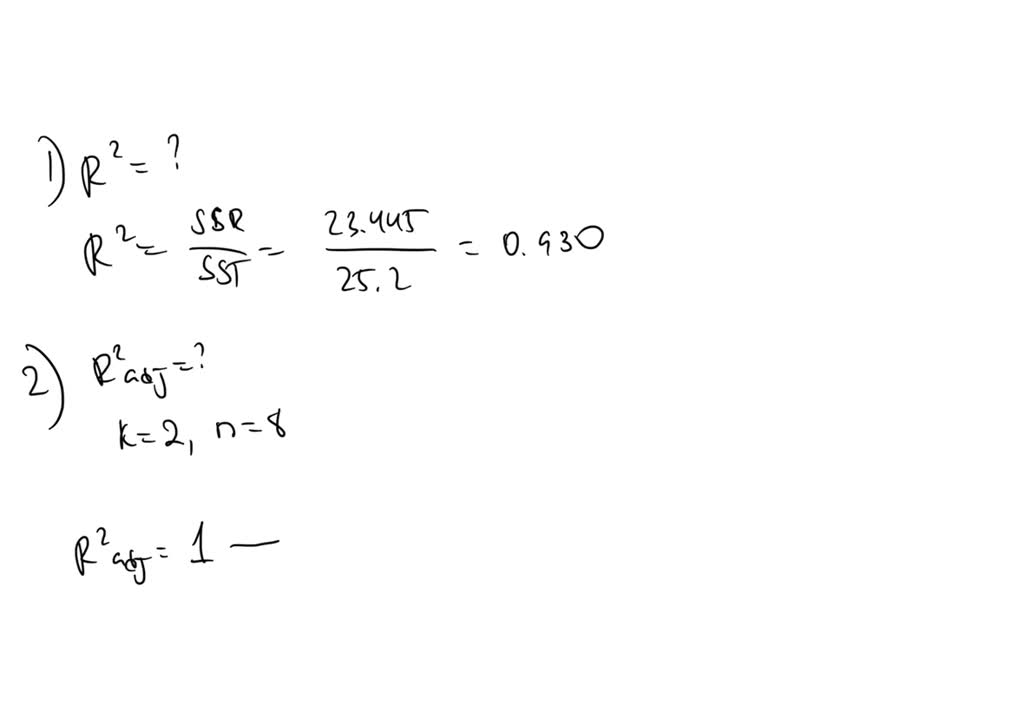 1) R² = ?
R² = SSR/SST = 23.445/25.2 = 0.930
2) R²adj = ?
k=2, n=8
R²adj = 1 —